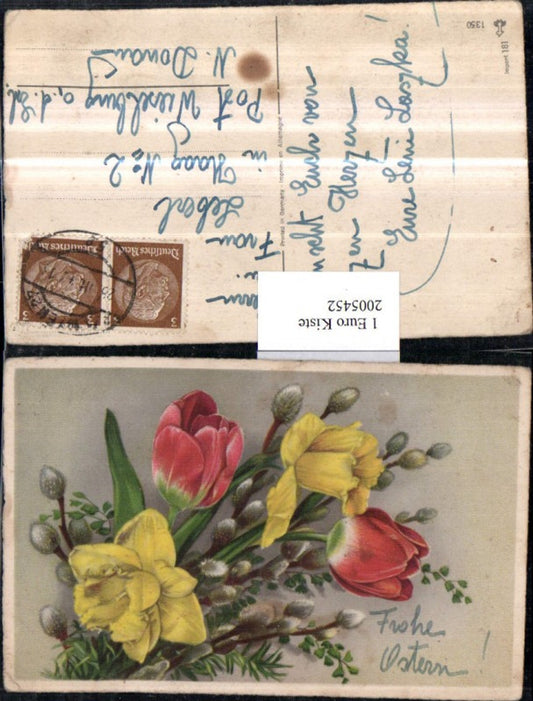 1350
Import 181
Printed in Germany Imprimé en Allemagne
Euch von
zen Herzen
Eure Leni Laszka!
Frau
Leberl
in Haag No: 2
Post Wieselburg a. d. Erl.
N. Donau
Deutsches Reich
3
3
Deutsches Reich
3
3
1 Euro Kiste
2005452
Frohe
Ostern!